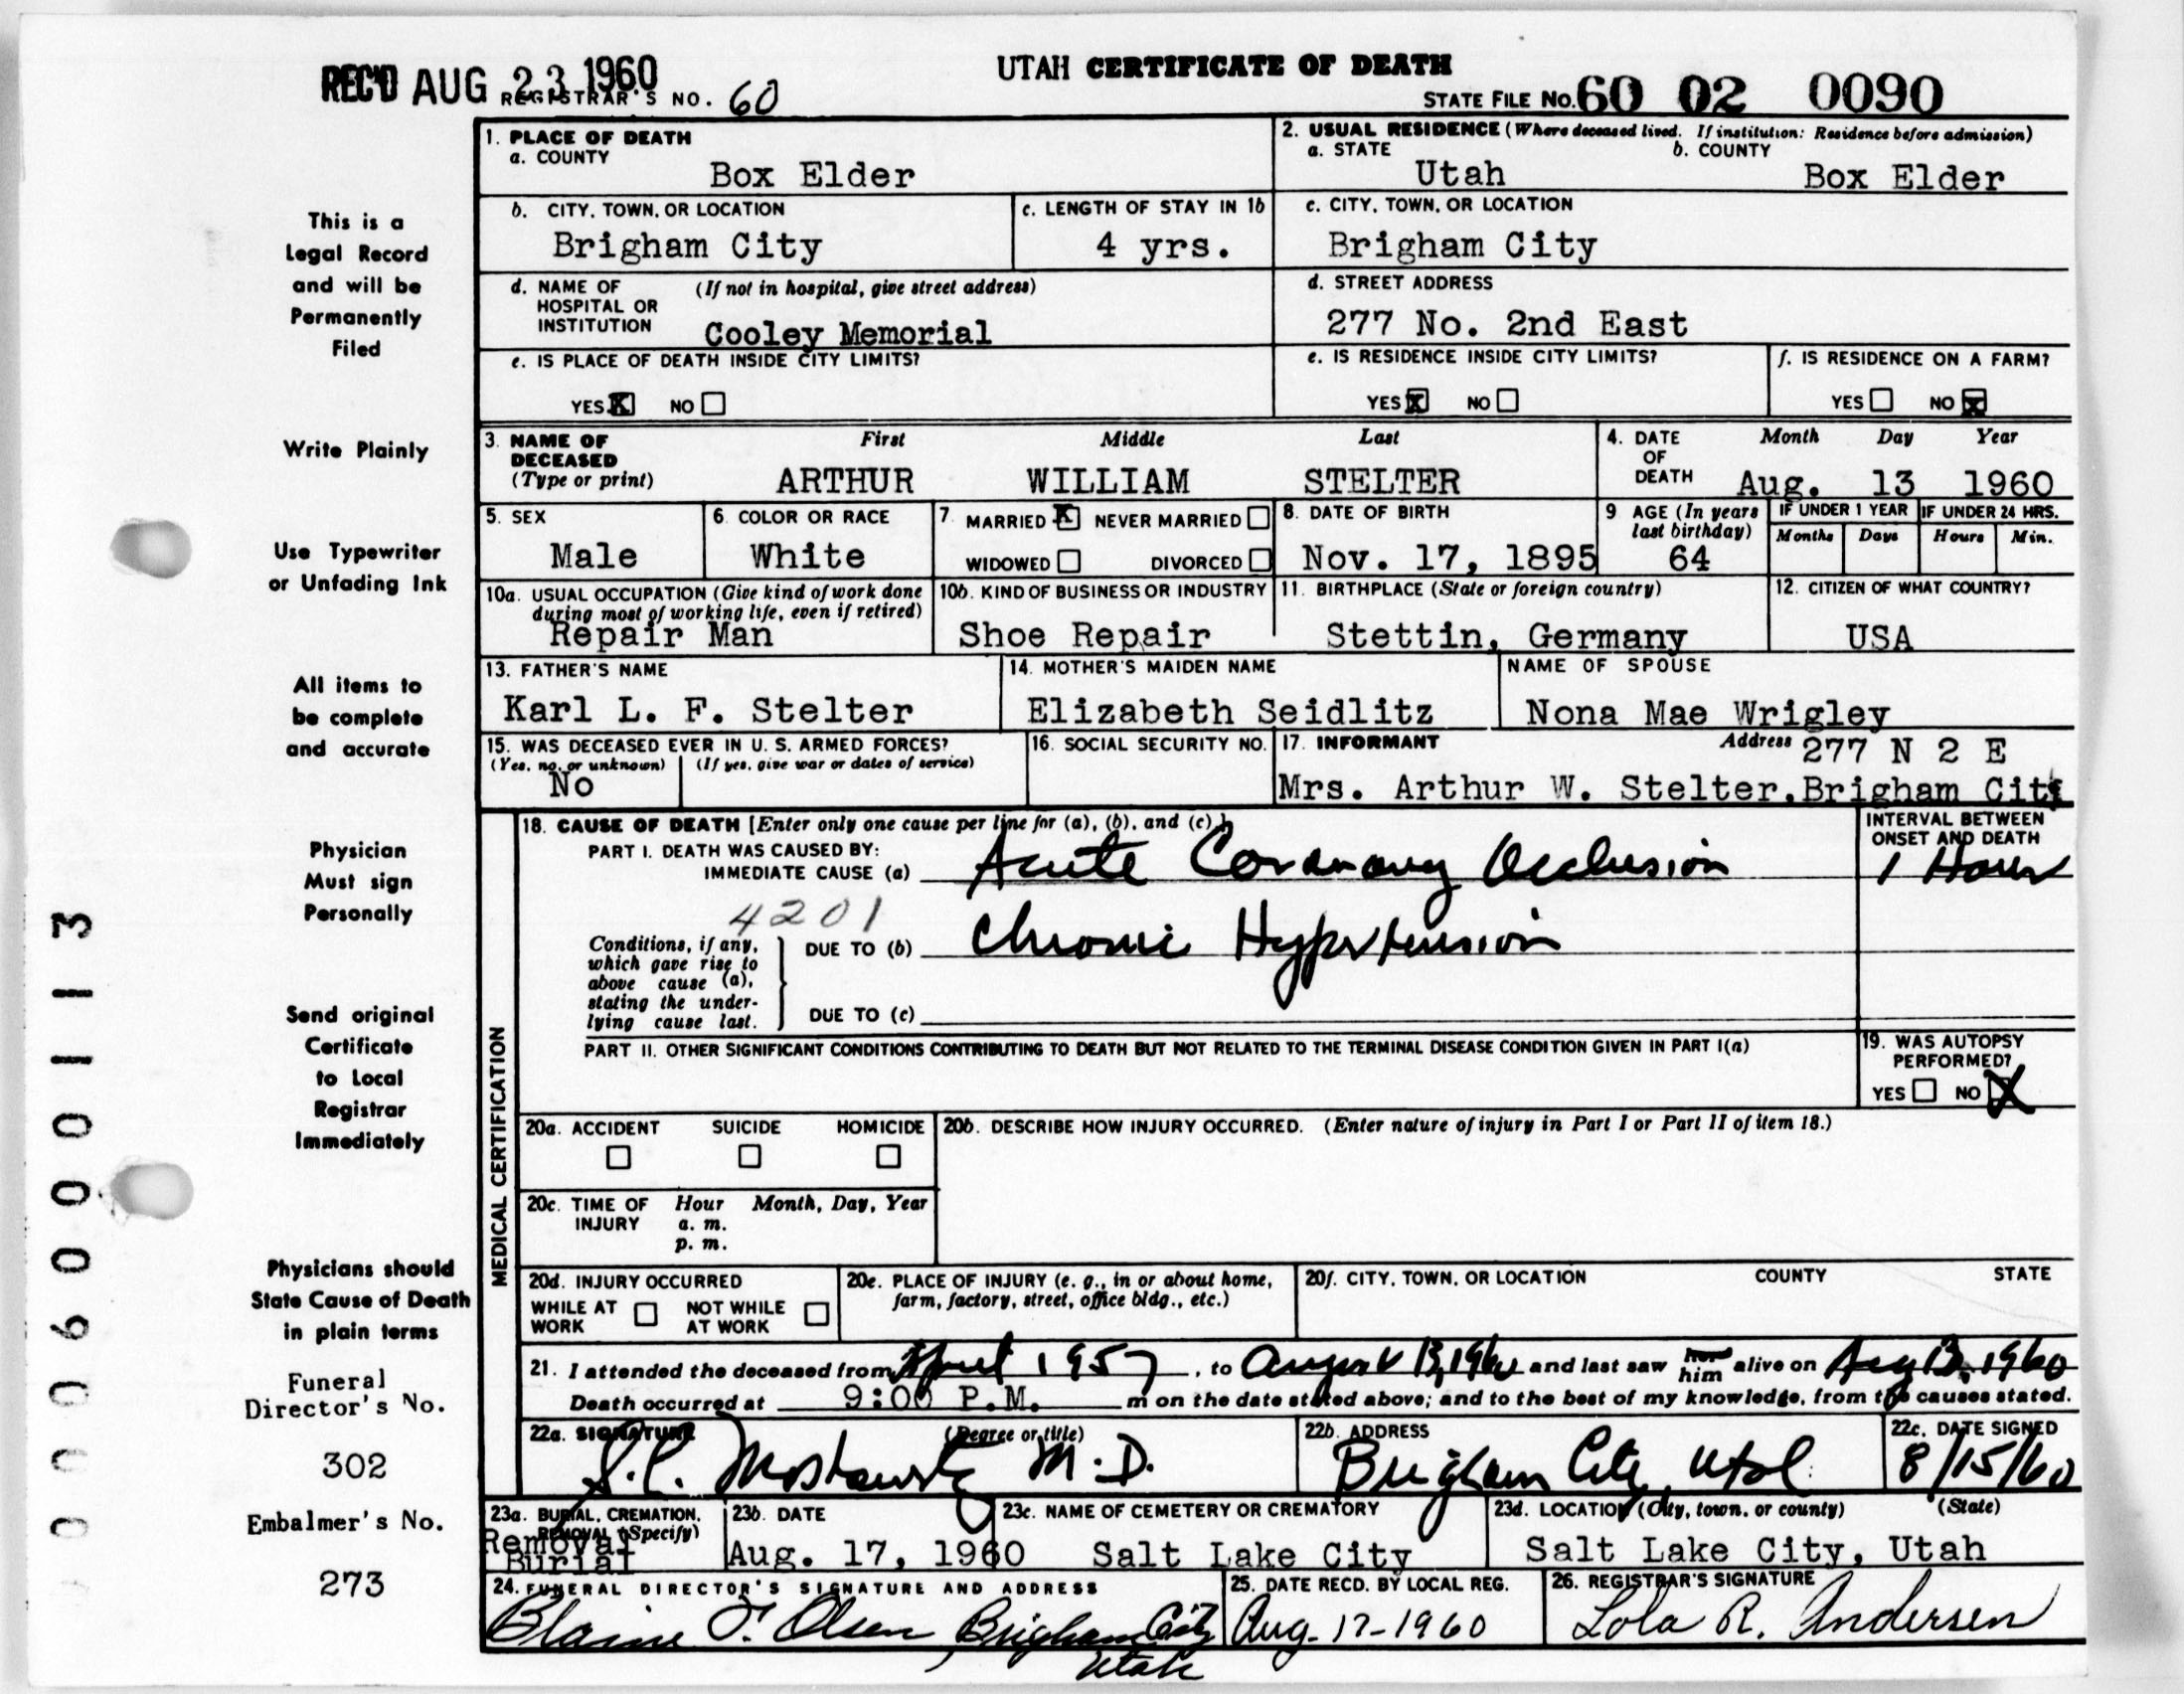 UTAH CERTIFICATE OF DEATH
REC'D AUG 23 1960
REGISTRAR'S NO. 60
STATE FILE No. 60 02 0090
1. PLACE OF DEATH
a. COUNTY
Box Elder
2. USUAL RESIDENCE (Where deceased lived. If institution: Residence before admission)
a. STATE b. COUNTY
Utah Box Elder
b. CITY, TOWN, OR LOCATION c. LENGTH OF STAY IN 1b
Brigham City 4 yrs.
c. CITY, TOWN, OR LOCATION
Brigham City
d. NAME OF HOSPITAL OR INSTITUTION (If not in hospital, give street address)
Cooley Memorial
d. STREET ADDRESS
277 No. 2nd East
e. IS PLACE OF DEATH INSIDE CITY LIMITS?
YES X NO
e. IS RESIDENCE INSIDE CITY LIMITS?
YES X NO
f. IS RESIDENCE ON A FARM?
YES NO X
3. NAME OF DECEASED (Type or print) First Middle Last
ARTHUR WILLIAM STELTER
4. DATE OF DEATH Month Day Year
Aug. 13 1960
5. SEX
Male
6. COLOR OR RACE
White
7. MARRIED X NEVER MARRIED
WIDOWED DIVORCED
8. DATE OF BIRTH
Nov. 17, 1895
9 AGE (In years last birthday)
64
IF UNDER 1 YEAR IF UNDER 24 HRS.
Months Days Hours Min.
10a. USUAL OCCUPATION (Give kind of work done during most of working life, even if retired)
Repair Man
10b. KIND OF BUSINESS OR INDUSTRY
Shoe Repair
11. BIRTHPLACE (State or foreign country)
Stettin, Germany
12. CITIZEN OF WHAT COUNTRY?
USA
13. FATHER'S NAME
Karl L. F. Stelter
14. MOTHER'S MAIDEN NAME
Elizabeth Seidlitz
NAME OF SPOUSE
Nona Mae Wrigley
15. WAS DECEASED EVER IN U. S. ARMED FORCES?
(Yes, no, or unknown) (If yes, give war or dates of service)
No
16. SOCIAL SECURITY NO.
17. INFORMANT Address 277 N 2 E
Mrs. Arthur W. Stelter, Brigham City
MEDICAL CERTIFICATION
18. CAUSE OF DEATH [Enter only one cause per line for (a), (b), and (c).]
PART I. DEATH WAS CAUSED BY:
IMMEDIATE CAUSE (a) Acute Coronary Occlusion
INTERVAL BETWEEN ONSET AND DEATH
1 Hour
4201
Conditions, if any, which gave rise to above cause (a), stating the underlying cause last.
DUE TO (b) Chronic Hypertension
DUE TO (c)
PART II. OTHER SIGNIFICANT CONDITIONS CONTRIBUTING TO DEATH BUT NOT RELATED TO THE TERMINAL DISEASE CONDITION GIVEN IN PART I(a)
19. WAS AUTOPSY PERFORMED?
YES NO X
20a. ACCIDENT SUICIDE HOMICIDE
20b. DESCRIBE HOW INJURY OCCURRED. (Enter nature of injury in Part I or Part II of item 18.)
20c. TIME OF INJURY Hour Month, Day, Year
a. m.
p. m.
20d. INJURY OCCURRED
WHILE AT WORK NOT WHILE AT WORK
20e. PLACE OF INJURY (e. g., in or about home, farm, factory, street, office bldg., etc.)
20f. CITY, TOWN, OR LOCATION COUNTY STATE
21. I attended the deceased from April 1957, to August 13, 1960 and last saw her him alive on Aug 13, 1960
Death occurred at 9:00 P.M. m on the date stated above; and to the best of my knowledge, from the causes stated.
22a. SIGNATURE (Degree or title)
M.D.
22b. ADDRESS
Brigham City, Utah
22c. DATE SIGNED
8/15/60
23a. BURIAL, CREMATION, REMOVAL (Specify)
Removal
Burial
23b. DATE
Aug. 17, 1960
23c. NAME OF CEMETERY OR CREMATORY
Salt Lake City
23d. LOCATION (City, town, or county) (State)
Salt Lake City, Utah
24. FUNERAL DIRECTOR'S SIGNATURE AND ADDRESS
Blaine F. Olsen, Brigham City
Utah
25. DATE RECD. BY LOCAL REG.
Aug. 17-1960
26. REGISTRAR'S SIGNATURE
Lola R. Andersen
This is a
Legal Record
and will be
Permanently
Filed
Write Plainly
Use Typewriter
or Unfading Ink
All items to
be complete
and accurate
Physician
Must sign
Personally
Send original
Certificate
to Local
Registrar
Immediately
Physicians should
State Cause of Death
in plain terms
Funeral
Director's No.
302
Embalmer's No.
273